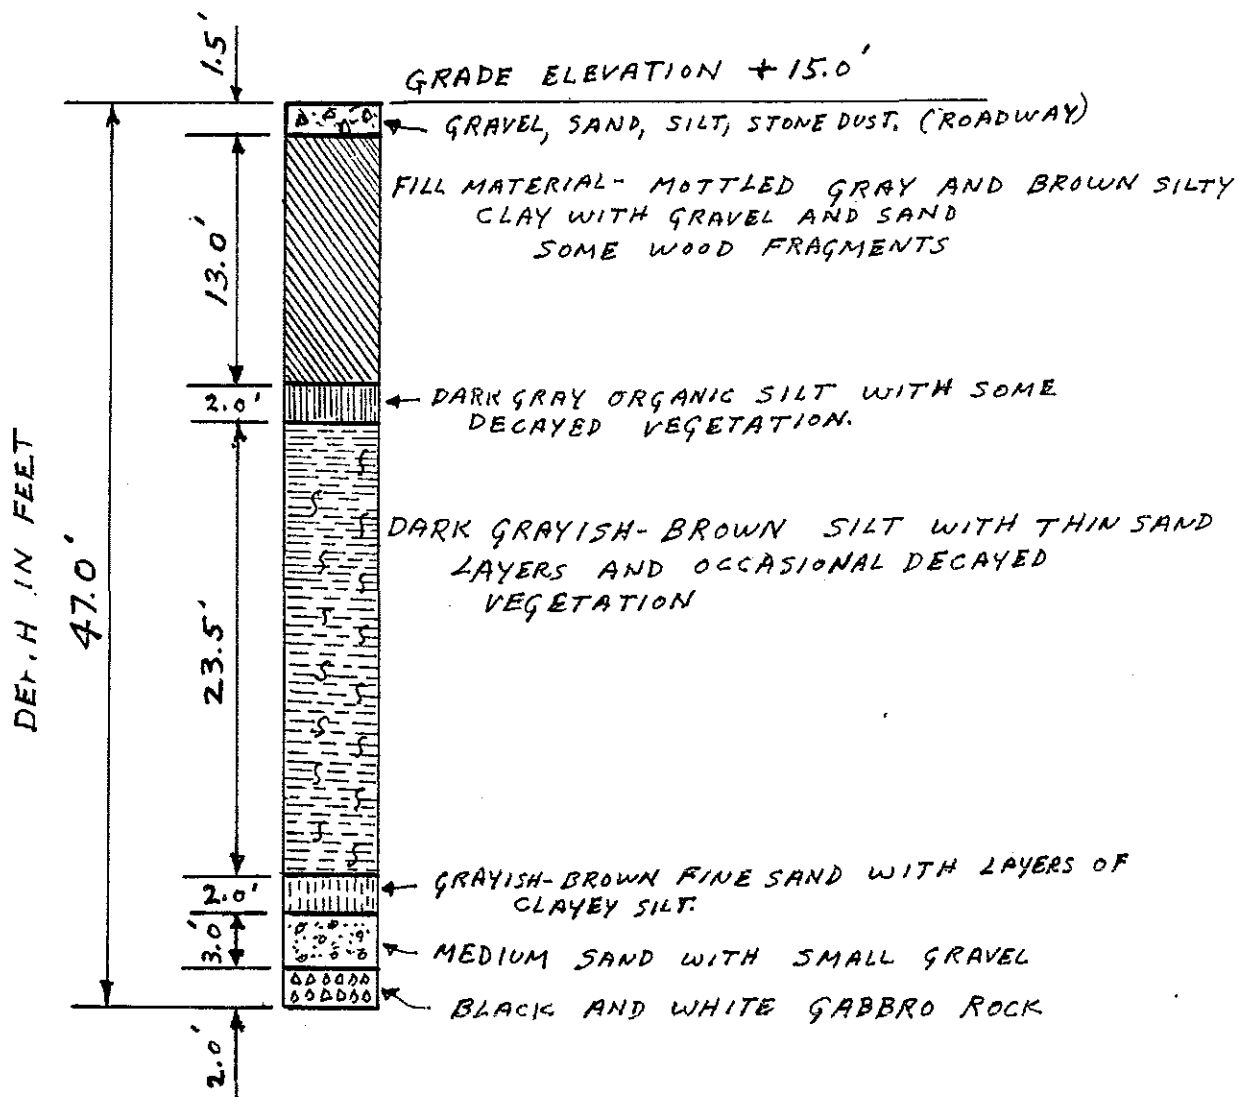 1.5'
GRADE ELEVATION + 15.0'
GRAVEL, SAND, SILT, STONE DUST. (ROADWAY)
FILL MATERIAL- MOTTLED GRAY AND BROWN SILTY
CLAY WITH GRAVEL AND SAND
SOME WOOD FRAGMENTS
13.0'
2.0'
DARK GRAY ORGANIC SILT WITH SOME
DECAYED VEGETATION.
IN FEET
47.0'
23.5'
DARK GRAYISH-BROWN SILT WITH THIN SAND
LAYERS AND OCCASIONAL DECAYED
VEGETATION
2.0'
GRAYISH-BROWN FINE SAND WITH LAYERS OF
CLAYEY SILT.
3.0'
MEDIUM SAND WITH SMALL GRAVEL
BLACK AND WHITE GABBRO ROCK
2.0'